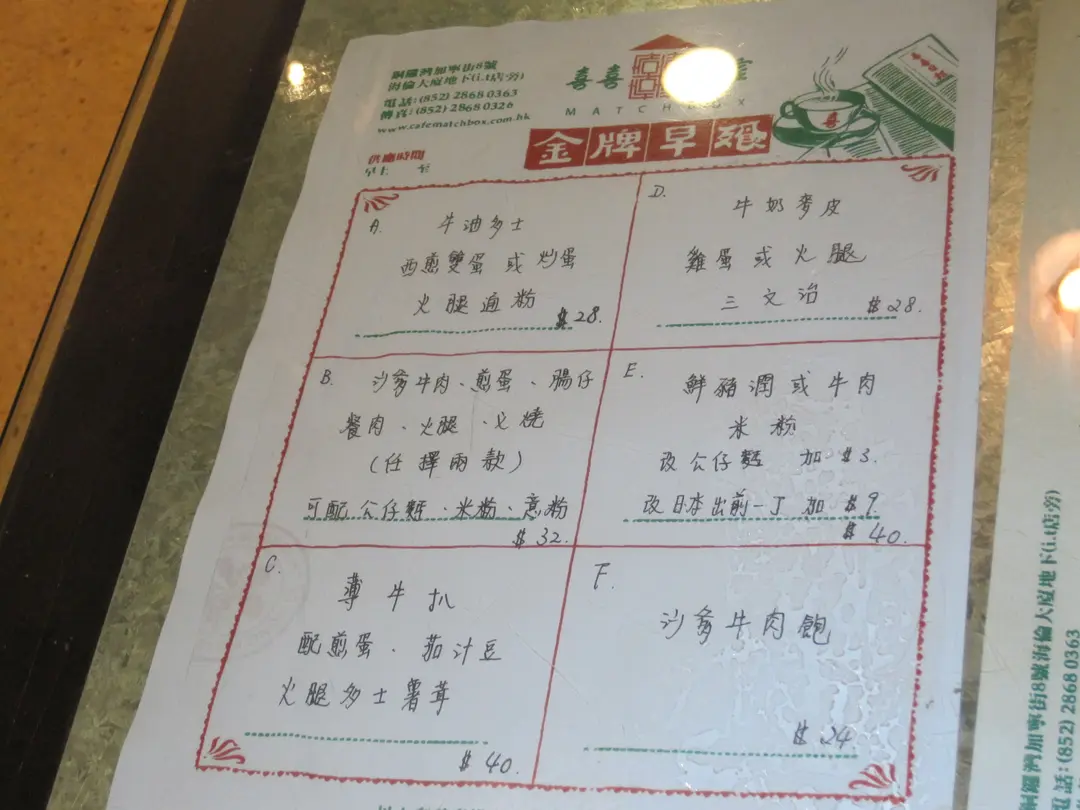 銅鑼灣加寧街8號
海倫大廈地下(i.t店旁)
電話:(852) 2868 0363
傳真:(852) 2868 0326
www.cafematchbox.com.hk
喜喜
MATCHBOX
金牌早餐
供應時間
早上 至
A. 牛油多士
西煎雙蛋或炒蛋
火腿通粉
$28.
D. 牛奶麥皮
雞蛋或火腿
三文治
$28.
B. 沙爹牛肉、煎蛋、腸仔
餐肉、火腿、叉燒
(任擇兩款)
可配公仔麵、米粉、意粉
$32.
E. 鮮豬潤或牛肉
米粉
改公仔麵 加 $3.
改日本出前一丁 加 $9.
$40.
C. 薄牛扒
配煎蛋、茄汁豆
火腿多士薯茸
$40.
F. 沙爹牛肉飽
$24
銅鑼灣加寧街8號海倫大廈地下(i.t店旁)
電話:(852) 2868 0363